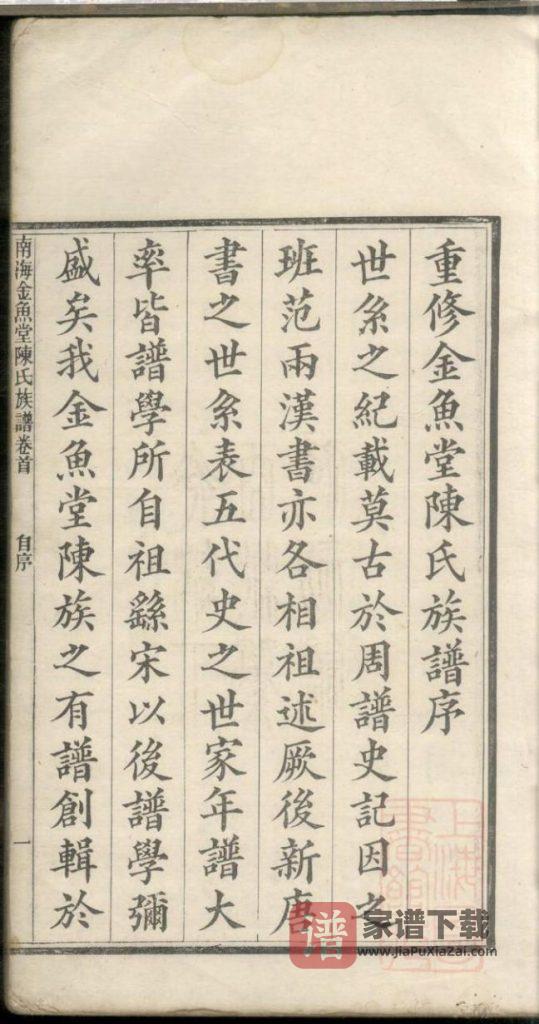 重修金魚堂陳氏族譜序
世系之紀載莫古於周譜史記因之
班范兩漢書亦各相祖述厥後新唐
書之世系表五代史之世家年譜大
率皆譜學所自祖繇宋以後譜學彌
盛矣我金魚堂陳族之有譜創輯於
南海金魚堂陳氏族譜卷首 自序 一
譜 家谱下载
www.jiaPuXiaZai.com